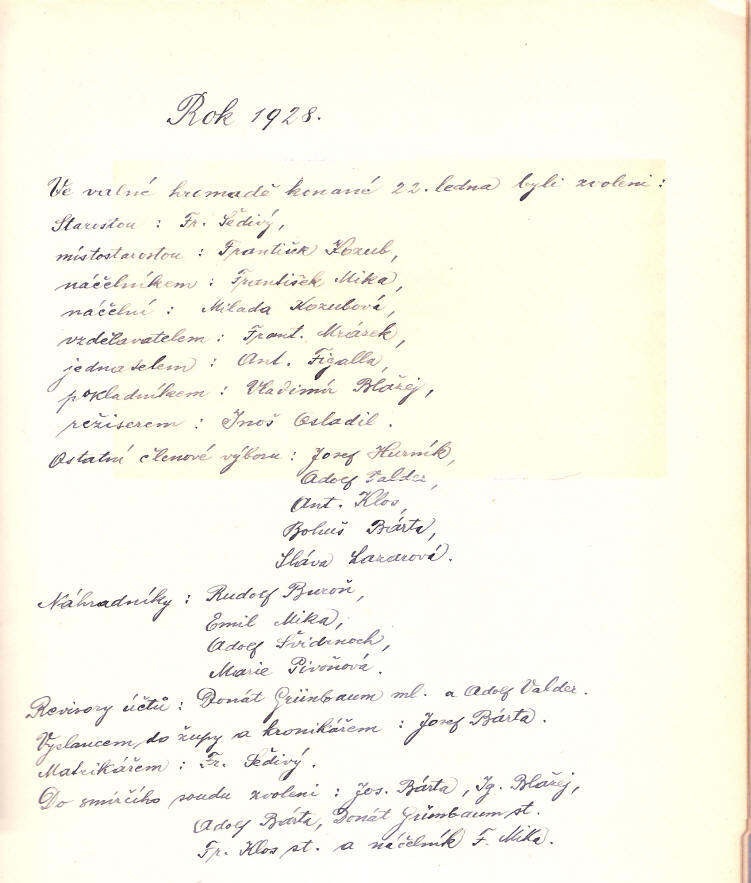 Rok 1928.
Ve valné hromadě konané 22. ledna byli zvoleni :
Starostou : Fr. Šedivý,
místostarostou : František Kozub,
náčelníkem : František Mika,
náčelní : Milada Kozubová,
vzdělavatelem : Frant. Mrázek,
jednatelem : Ant. Figalla,
pokladníkem : Vladimír Blažej,
režiserem : Inoš Osladil.
Ostatní členové výboru : Josef Hurník,
Adolf Valder,
Ant. Klos,
Bohuš Bárta,
Sláva Lazarová.
Náhradníky : Rudolf Buroň,
Emil Mika,
Adolf Švidrnoch,
Marie Pivoňová.
Revisory účtů : Donát Grünbaum ml. a Adolf Valder.
Vyslancem do župy a kronikářem : Josef Bárta.
Matrikářem : Fr. Šedivý.
Do smírčího soudu zvoleni : Jos. Bárta, Ig. Blažej,
Adolf Bárta, Donát Grünbaum st.
Fr. Klos st. a náčelník F. Mika.